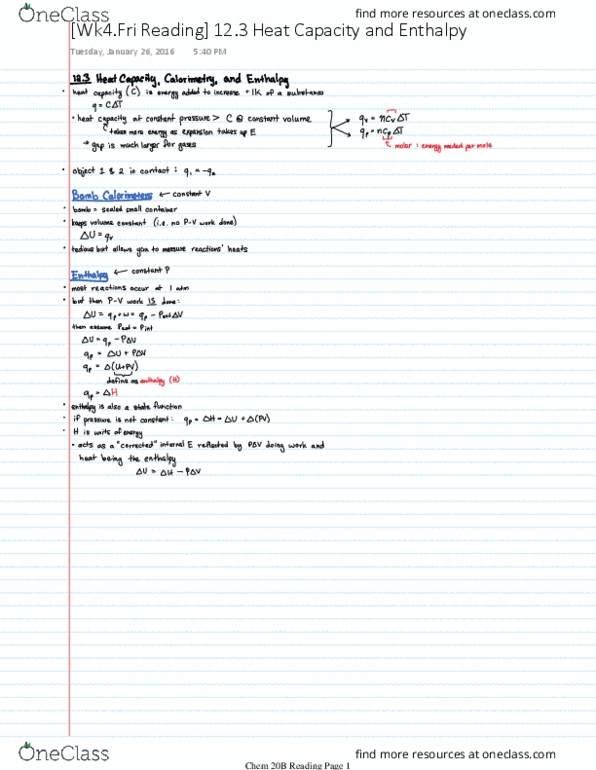 OneClass find more resources at oneclass.com
[Wk4.Fri Reading] 12.3 Heat Capacity and Enthalpy
Tuesday, January 26, 2016 5:40 PM
12.3 Heat Capacity, Calorimetry, and Enthalpy
• heat capacity (C) is energy added to increase +1K of a substance
q = CΔT
• heat capacity at constant pressure > C @ constant volume
takes more energy as expansion takes up E
→ gap is much larger for gases
qv = ncvΔT
qp = ncpΔT
molar : energy needed per mole
• object 1 & 2 in contact : q₁ = -q₂
Bomb Calorimeters ← constant V
• bomb = sealed small container
• keeps volume constant (i.e. no P-V work done)
ΔU = qv
• tedious but allows you to measure reactions' heats
Enthalpy ← constant P
• most reactions occur at 1 atm
• but then P-V work IS done:
ΔU = qp + w = qp - PextΔV
then assume Pext = Pint
ΔU = qp - PΔV
qp = ΔU + PΔV
qp = Δ(U+PV)
define as enthalpy (H)
qp = ΔH
• enthalpy is also a state function
• if pressure is not constant : qp = ΔH = ΔU + Δ(PV)
• H is units of energy
• acts as a "corrected" internal E reflected by PΔV doing work and
heat being the enthalpy
ΔU = ΔH - PΔV
OneClass find more resources at oneclass.com
Chem 20B Reading Page 1